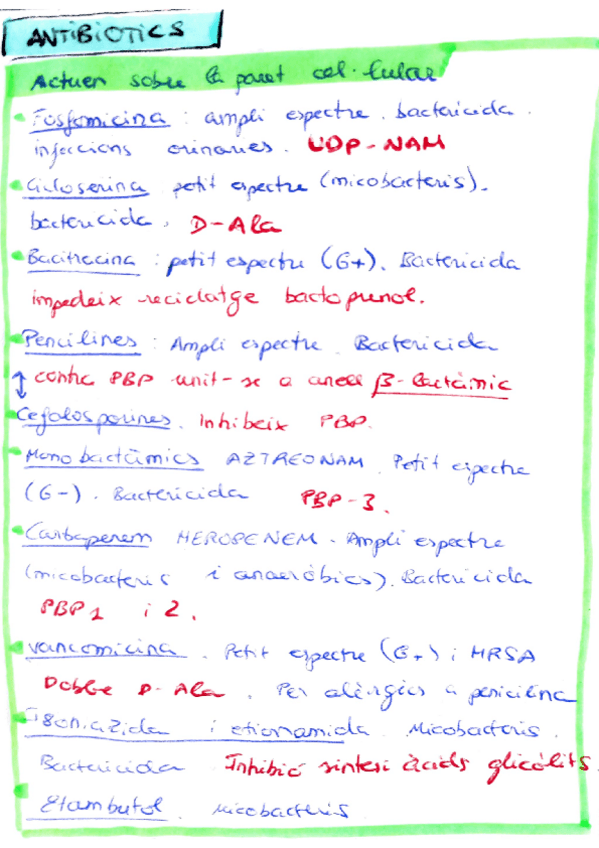 ANTIBIOTICS
Actuen sobre la paret cel·lular
Fosfomicina : ampli espectre. bactericida.
infeccions orinaries. UDP-NAM
Cicloserina petit espectre (micobacteris).
bactericida. D-Ala
Bacitracina : petit espectre (G+). Bactericida
impedeix reciclatge bactoprenol.
Pencilines : Ampli espectre. Bactericida
↑ contra PBP unit-se a anell β-lactàmic
↓
Cefalosporines. Inhibeix PBP.
Monobactàmics AZTREONAM. Petit espectre
(G-). Bactericida PBP-3.
Carbaperem MEROPENEM. Ampli espectre
(micobacteris i anaeròbics). Bactericida
PBP1 i 2.
Vancomicina. Petit espectre (G+) i MRSA
Doble D-Ala. Per alèrgics a penicilina
Isoniazida i etionamida. Micobacteris.
Bactericida Inhibió sintesi àcids glicòlits.
Etambutol. Micobacteris